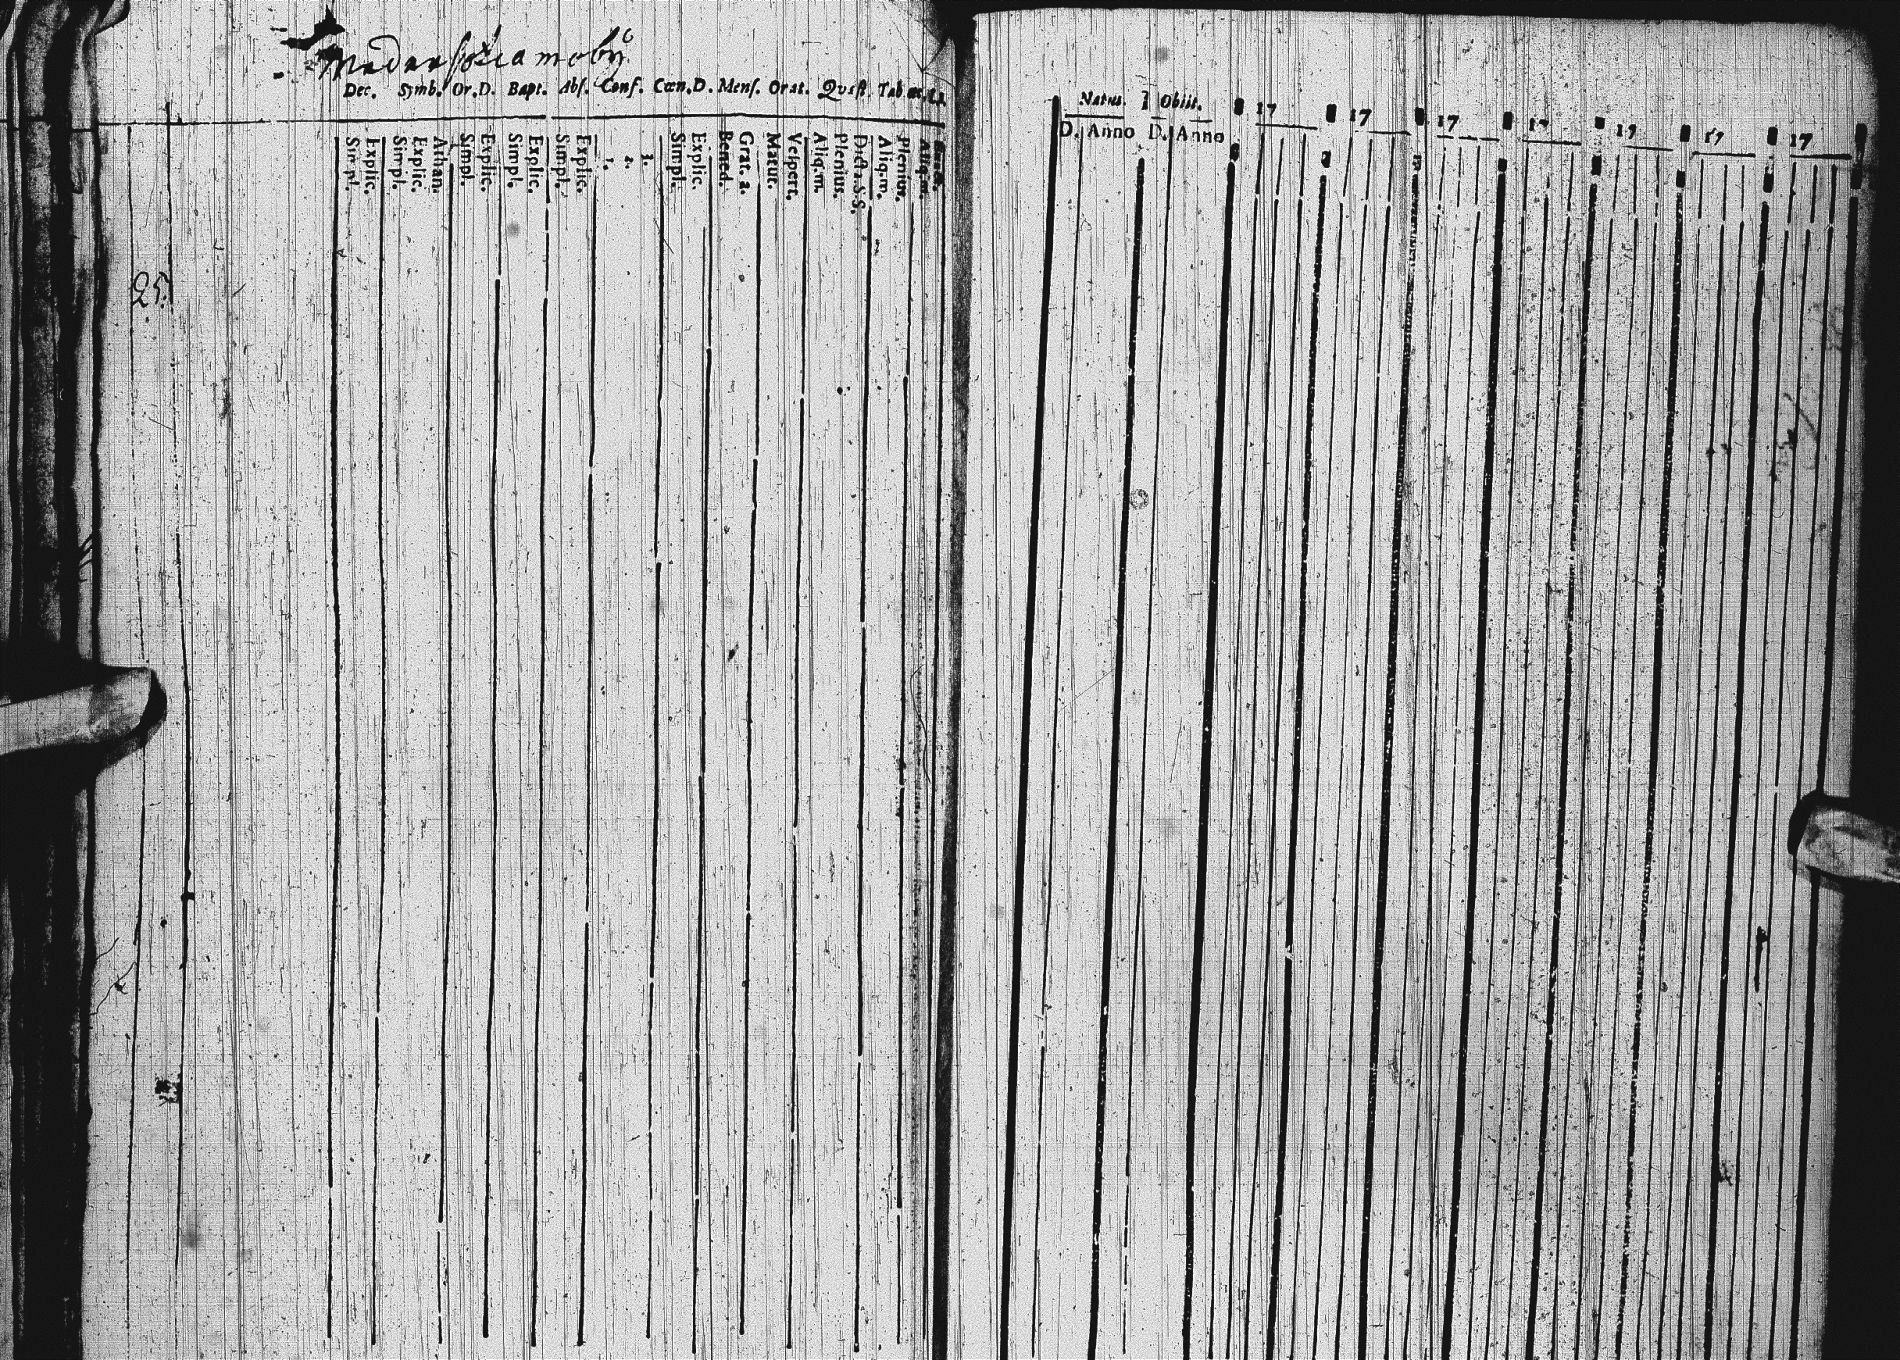 Dec. Symb. Or.D. Bapt. Abs. Conf. Cœn.D. Mens. Orat. Quæst. Tab.
Simpl. Explic. Simpl. Explic. Athan. Simpl. Explic. Simpl. Explic. Simpl. Explic. 1. 2. 3. Simpl. Explic. Bened. Grat. a. Matut. Vespert. Aliq.m. Plenius. Dicta.S.S. Aliq.m. Plenius. Aliq.m.
25.
Natus. Obiit. 17 17 17 17 17 17 17
D. Anno D. Anno